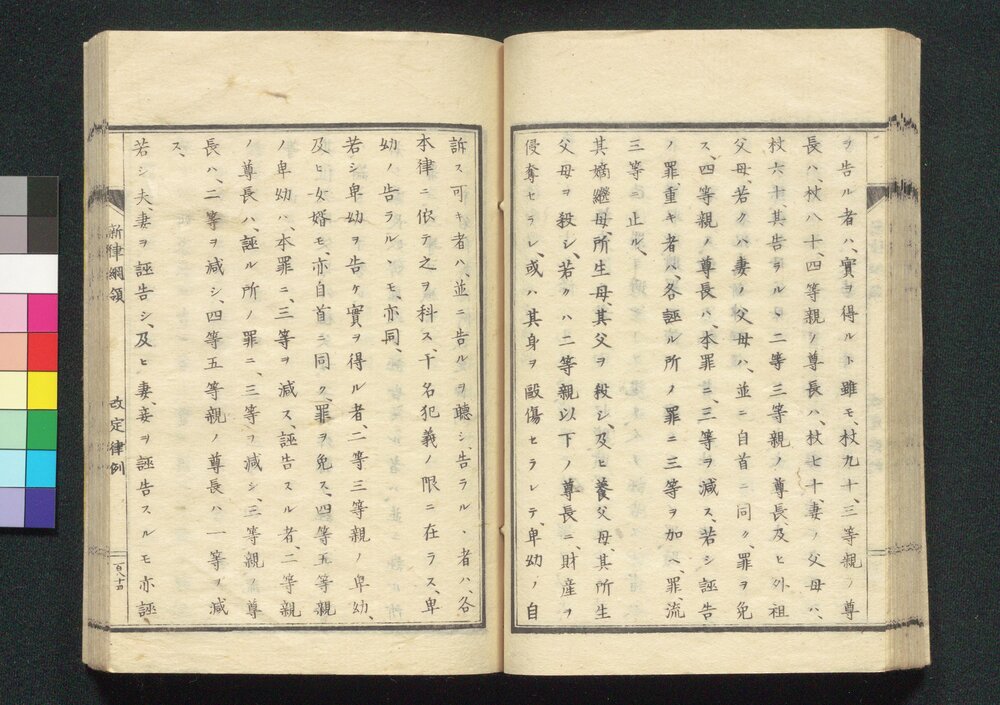 ヲ告ル者ハ、實ヲ得ルト雖モ、杖九十、三等親ノ尊
長ハ、杖八十、四等親ノ尊長ハ、杖七十、妻ノ父母ハ、
杖六十、其告ラルヽ、二等三等親ノ尊長、及ヒ外祖
父母、若クハ妻ノ父母ハ、並ニ自首ニ同ク、罪ヲ免
ス、四等親ノ尊長ハ、本罪ニ、三等ヲ減ス、若シ誣告
ノ罪、重キ者ハ、各誣ル所ノ罪ニ三等ヲ加ヘ、罪流
三等ニ止ル、
其嫡繼母、所生母、其父ヲ殺シ、及ヒ養父母、其所生
父母ヲ殺シ、若クハ二等親以下ノ尊長ニ、財産ヲ
侵奪セラレ、或ハ其身ヲ毆傷セラレテ、卑幼ノ自
訴ス可キ者ハ、並ニ告ルヲ聽シ、告ラルヽ者ハ、各
本律ニ依テ之ヲ科ス、干名犯義ノ限ニ在ラス、卑
幼ノ告ラルヽモ、亦同、
若シ卑幼ヲ告ケ、實ヲ得ル者、二等三等親ノ卑幼、
及ヒ女婿モ、亦自首ニ同ク、罪ヲ免ス、四等五等親
ノ卑幼ハ、本罪ニ、三等ヲ減ス、誣告スル者、二等親
ノ尊長ハ、誣ル所ノ罪ニ、三等ヲ減シ、三等親ノ尊
長ハ、二等ヲ減シ、四等五等親ノ尊長ハ一等ヲ減
ス、
若シ夫、妻ヲ誣告シ、及ヒ妻、妾ヲ誣告スルモ亦誣
新律綱領 改定律例 百八十四